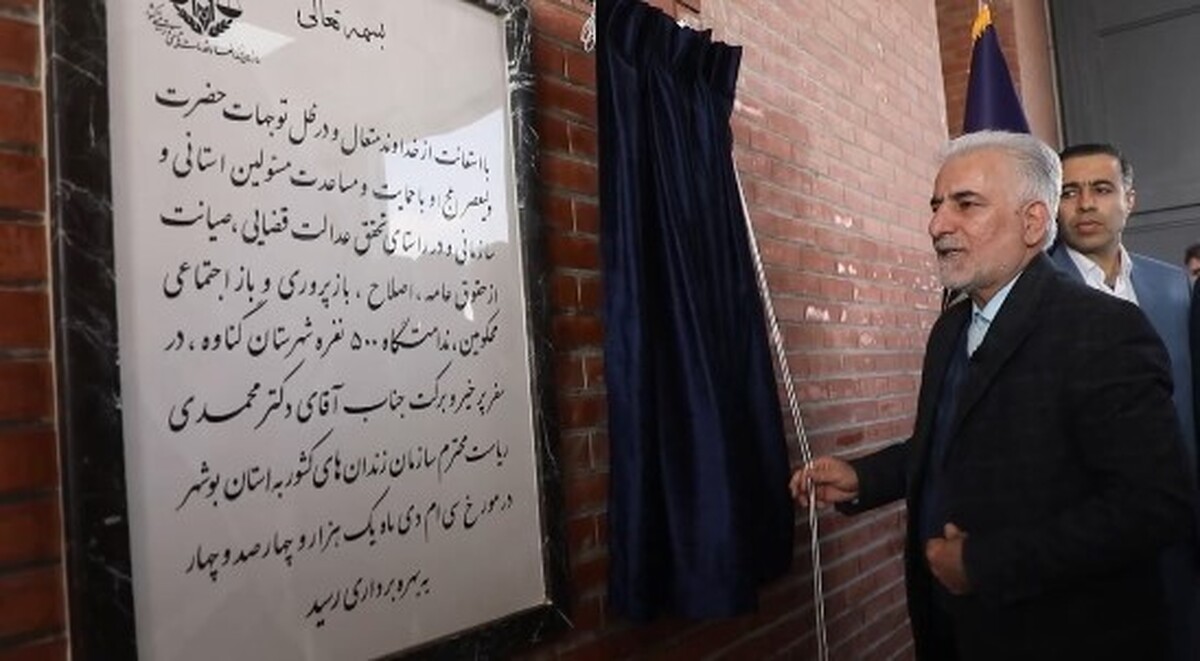 بسمه تعالی
با استعانت از خداوند متعال و در ظل توجهات حضرت
ولیعصر عج و با حمایت و مساعدت مسئولین استانی و
سازمانی و در راستای تحقق عدالت قضایی، صیانت
از حقوق عامه، اصلاح، بازپروری و باز اجتماعی
محکومین، ندامتگاه ۵۰۰ نفره شهرستان گناوه، در
سفر پر خیر و برکت جناب آقای دکتر محمدی
ریاست محترم سازمان زندان های کشور به استان بوشهر
در مورخ سی ام دی ماه یک هزار و چهار صد و چهار
به بهره برداری رسید